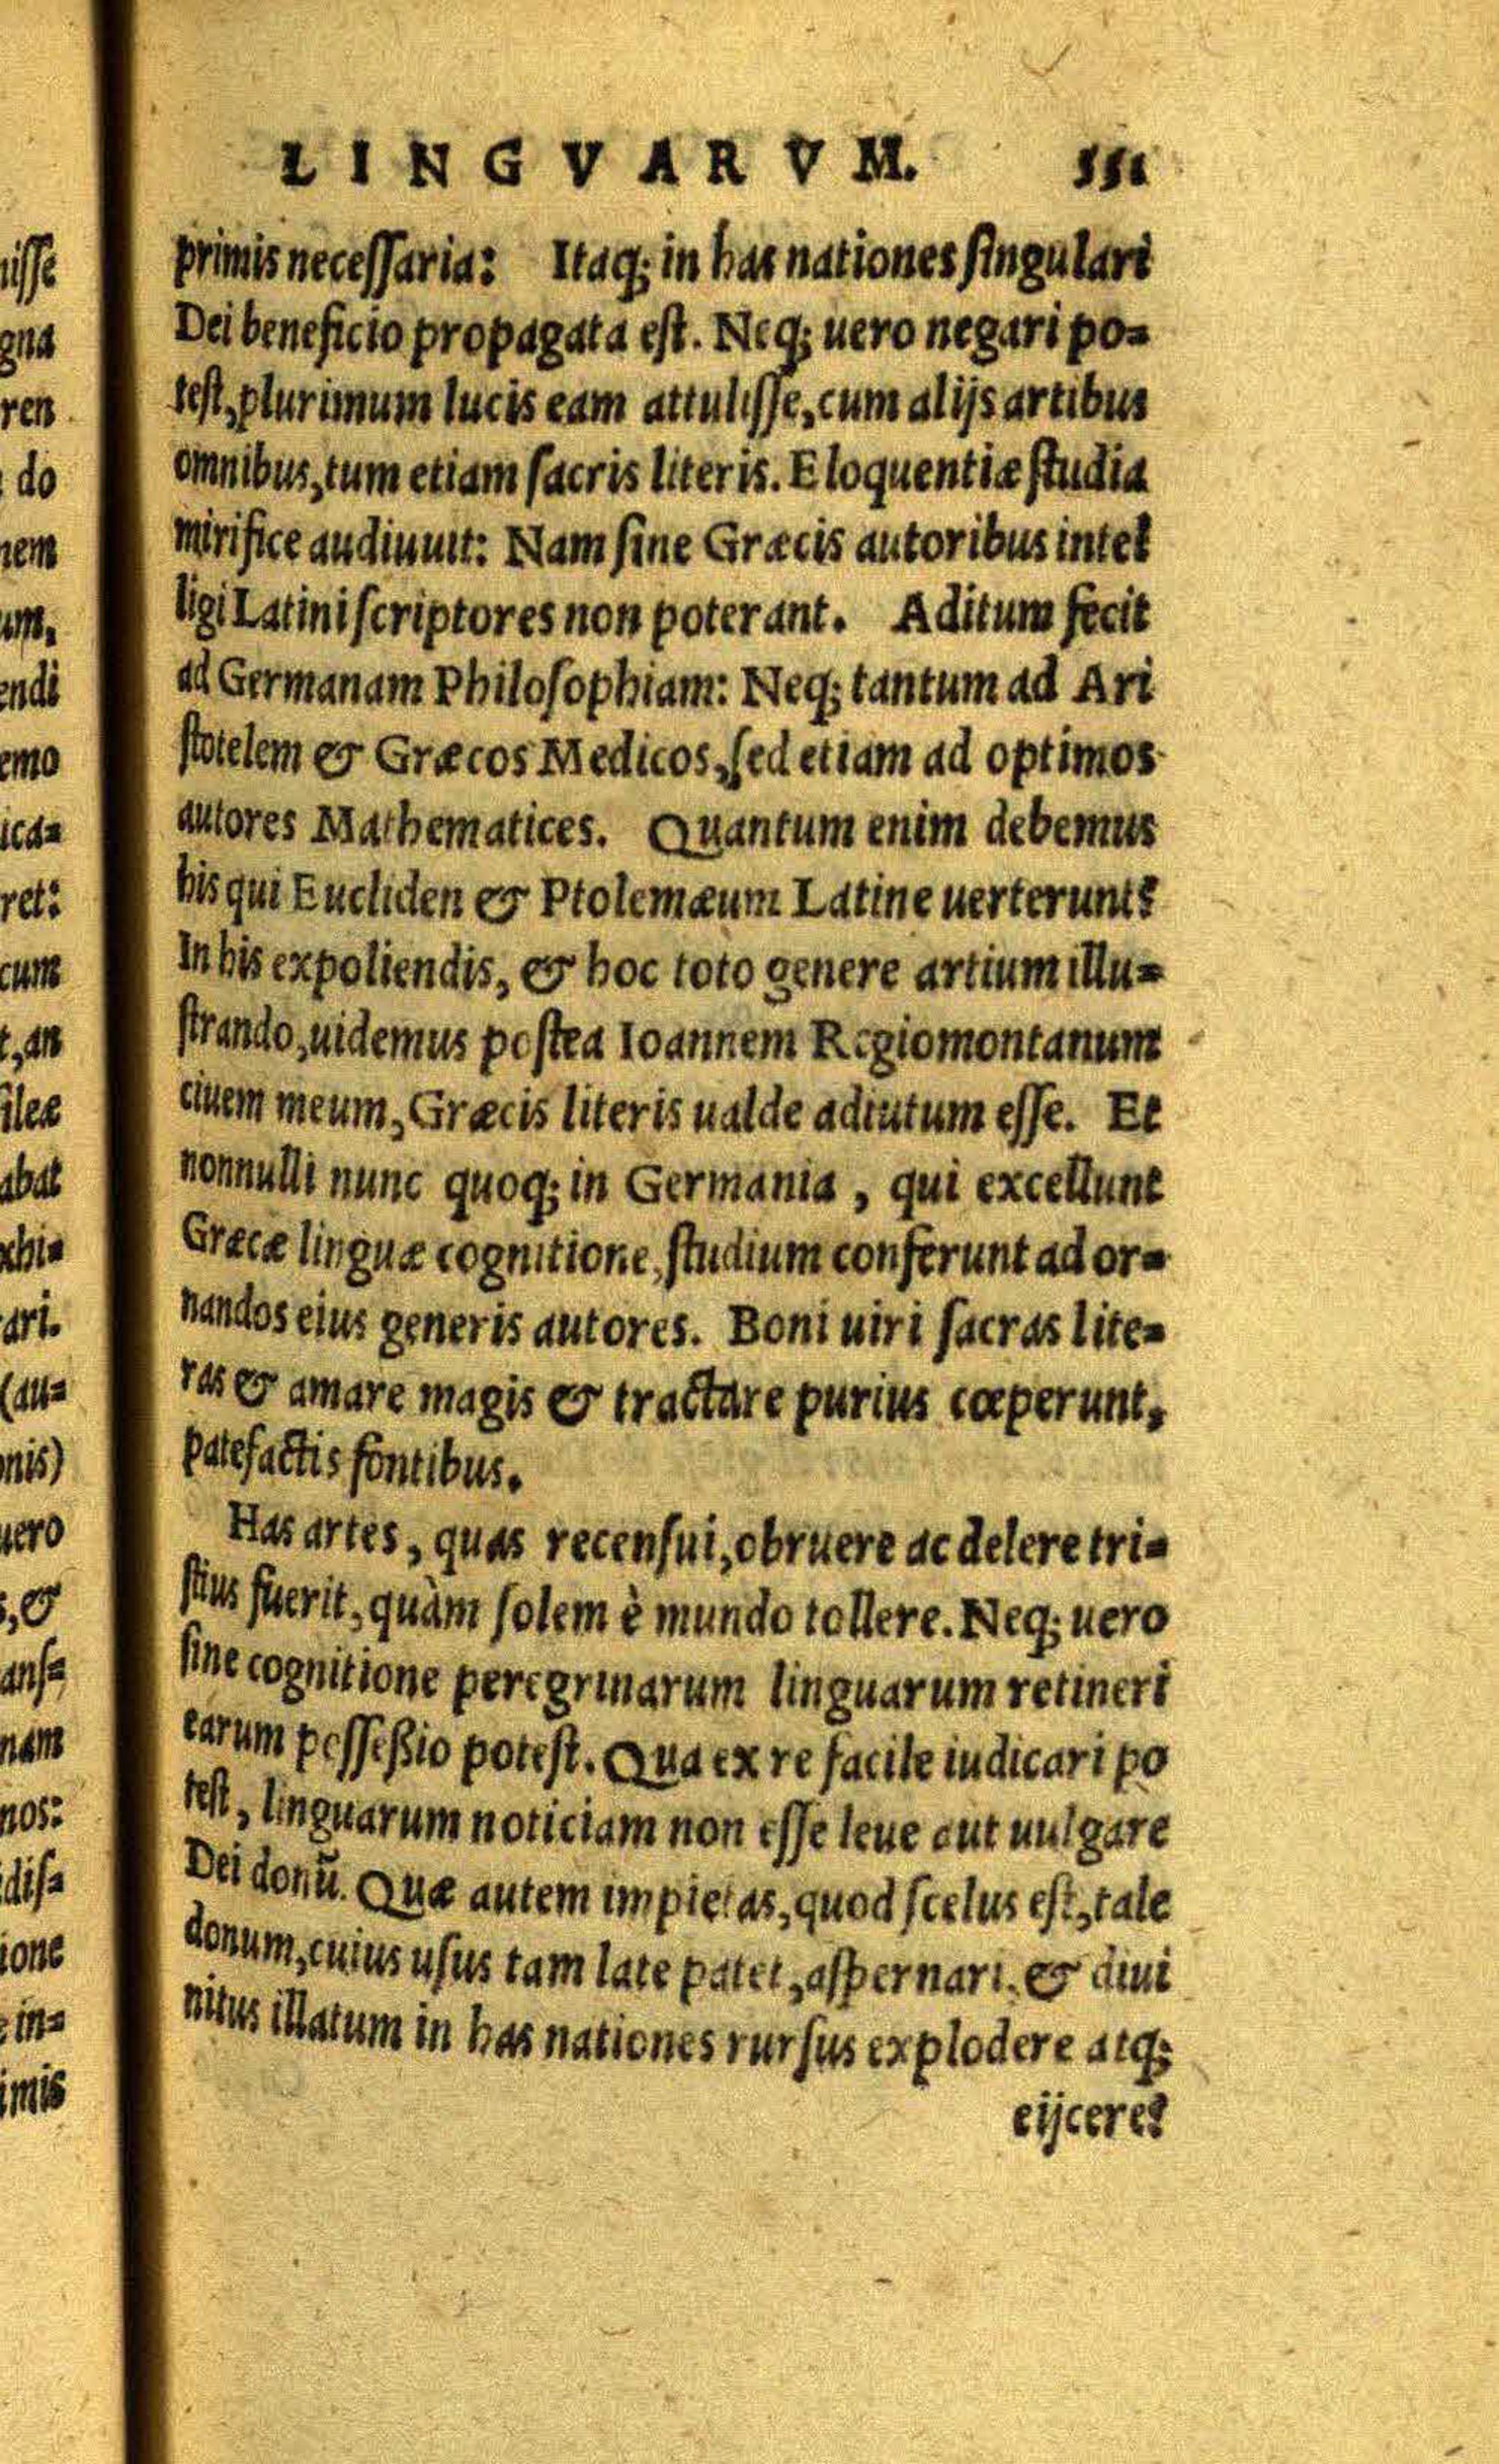 LINGVARVM. 551
primis necessaria: Itaq; in has nationes singulari
Dei beneficio propagata est. Neq; uero negari po=
test, plurimum lucis eam attulisse, cum alijs artibus
omnibus, tum etiam sacris literis. Eloquentiæ studia
mirifice audiuuit: Nam sine Græcis autoribus intel
ligi Latini scriptores non poterant. Aditum fecit
ad Germanam Philosophiam: Neq; tantum ad Ari
stotelem & Græcos Medicos, sed etiam ad optimos
autores Mathematices. Quantum enim debemus
his qui Eucliden & Ptolemæum Latine uerterunt?
In his expoliendis, & hoc toto genere artium illu=
strando, uidemus postea Ioannem Regiomontanum
ciuem meum, Græcis literis ualde adiutum esse. Et
nonnulli nunc quoq; in Germania, qui excellunt
Græcæ linguæ cognitione, studium conferunt ad or=
nandos eius generis autores. Boni uiri sacras lite=
ras & amare magis & tractare purius cœperunt,
patefactis fontibus.
Has artes, quas recensui, obruere ac delere tri=
stius fuerit, quàm solem è mundo tollere. Neq; uero
sine cognitione peregrinarum linguarum retineri
earum possessio potest. Qua ex re facile iudicari po
test, linguarum noticiam non esse leue aut uulgare
Dei donũ. Quæ autem impietas, quod scelus est, tale
donum, cuius usus tam late patet, aspernari, & diui
nitus illatum in has nationes rursus explodere atq;
eijcere?
uisse
gna
ren
do
nem
um,
endi
emo
ica=
ret:
cum
t, an
ileæ
abat
xhi=
ari.
(au=
nis)
uero
s, &
ans=
nam
nos:
dis=
ione
in=
imis